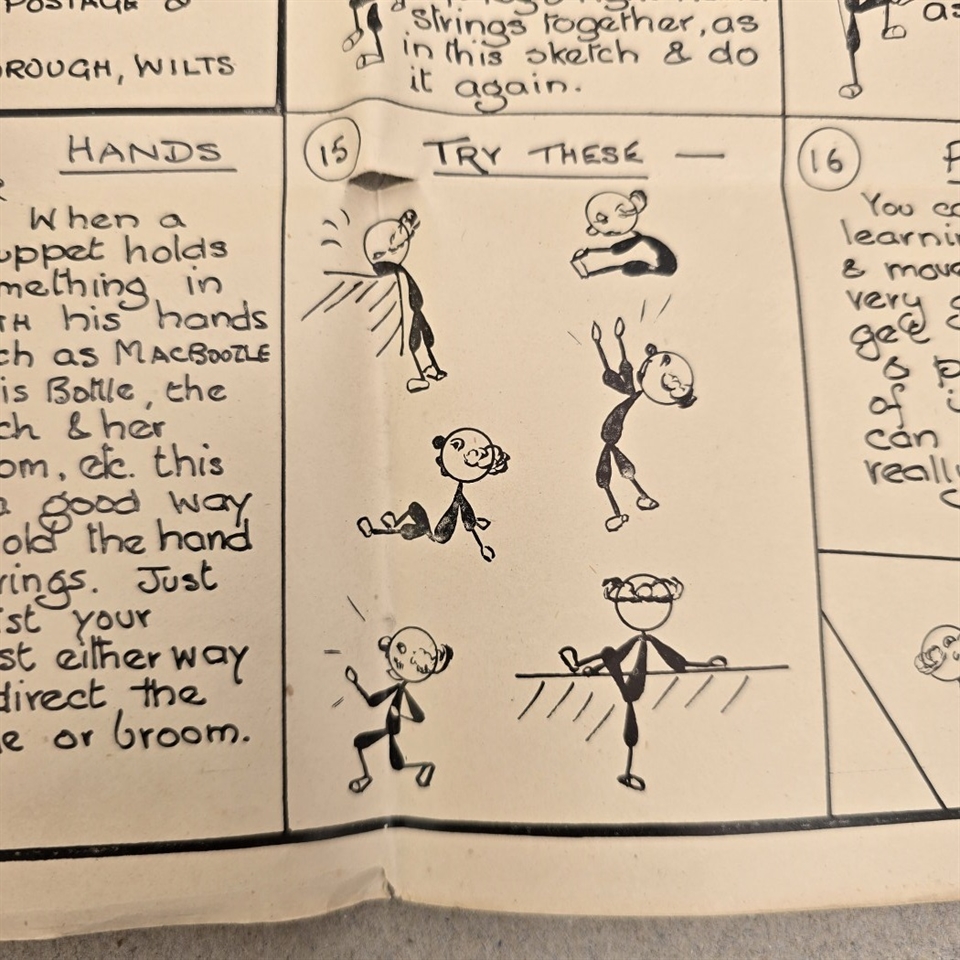 POSTAGE &
ROUGH, WILTS
strings together, as
in this sketch & do
it again.
as
HANDS
When a
uppet holds
mething in
TH his hands
ch as MACBOOZLE
is Bottle, the
ch & her
om, etc. this
a good way
old the hand
rings. Just
ist your
st either way
direct the
e or broom.
15 TRY THESE —
16
You co
learnin
& move
very g
gee
a p
of i
can
really